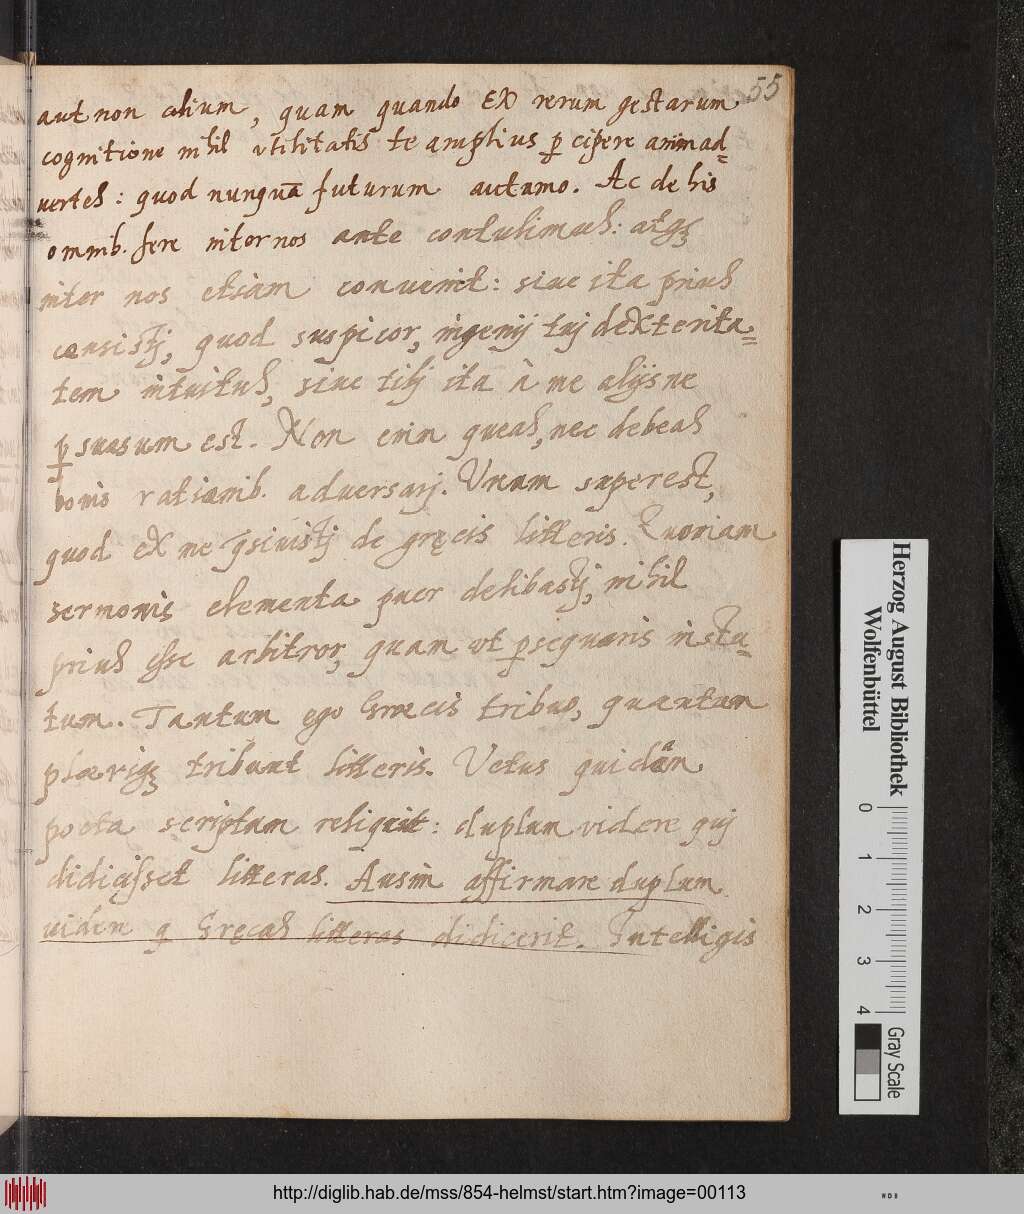 55
aut non alium, quam quando EX rerum gestarum
cognitione nihil vtilitatis te amplius ꝑ cipere animad=
uertes: quod nunquā futurum autumo. Ac de his
omnib. fere inter nos ante contulimus: atqꝫ
inter nos etiam conuenit: siue ita prius
censistj, quod suspicor, ingenij tuj dexterita=
tem intuitus, siue tibj ita à me alijsne
ꝑsuasum est. Non enim queas, nec debeas
bonis rationib. aduersarj. Vnum superest,
quod ex me q̃siuistj de gręcis litteris. Quoniam
sermonis elementa puer delibastj, nihil
prius esse arbitror, quam vt ꝑsequaris institu=
tum. Tantum ego Græcis tribuo, quantum
plæriqꝫ tribuunt litteris. Vetus quidam
poeta scriptum reliquit: duplum videre quj
didicisset litteras. Ausim affirmare duplum
uidere q Gręcas litteras didicerit. Intelligis
Herzog August Bibliothek
Wolfenbüttel
0 1 2 3 4
Gray Scale
http://diglib.hab.de/mss/854-helmst/start.htm?image=00113